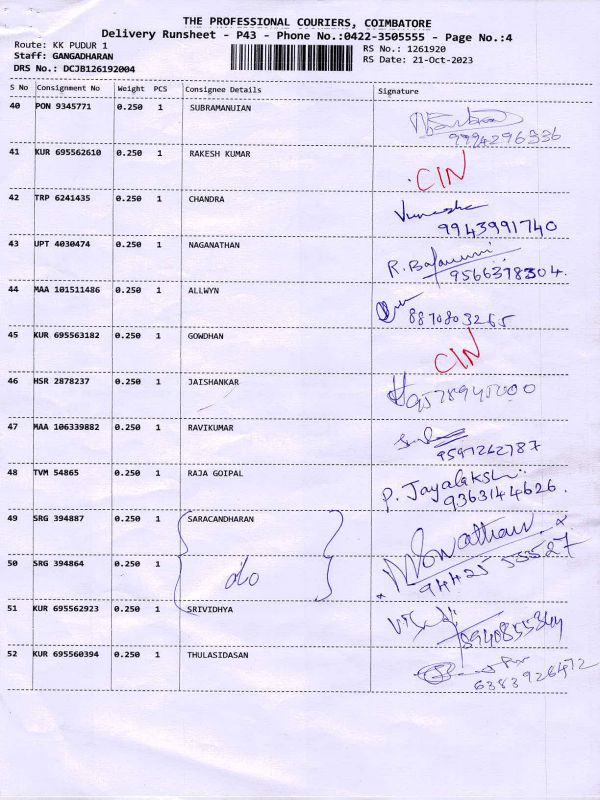 THE PROFESSIONAL COURIERS, COIMBATORE
Delivery Runsheet - P43 - Phone No.:0422-3505555 - Page No.:4
Route: KK PUDUR 1
RS No.: 1261920
Staff: GANGADHARAN
RS Date: 21-Oct-2023
DRS No.: DCJB126192004
S No Consignment No Weight PCS Consignee Details Signature
40 PON 9345771 0.250 1 SUBRAMANUIAN
9994296336
41 KUR 695562610 0.250 1 RAKESH KUMAR
CIN
42 TRP 6241435 0.250 1 CHANDRA
9943991740
43 UPT 4030474 0.250 1 NAGANATHAN
9566378304.
44 MAA 101511486 0.250 1 ALLWYN
8870803265
45 KUR 695563182 0.250 1 GOWDHAN
CIN
46 HSR 2878237 0.250 1 JAISHANKAR
47 MAA 106339882 0.250 1 RAVIKUMAR
9597262787
48 TVM 54865 0.250 1 RAJA GOIPAL
P. Jayalakshi
9363144626.
49 SRG 394887 0.250 1 SARACANDHARAN
50 SRG 394864 0.250 1 do
51 KUR 695562923 0.250 1 SRIVIDHYA
52 KUR 695560394 0.250 1 THULASIDASAN
6383926472